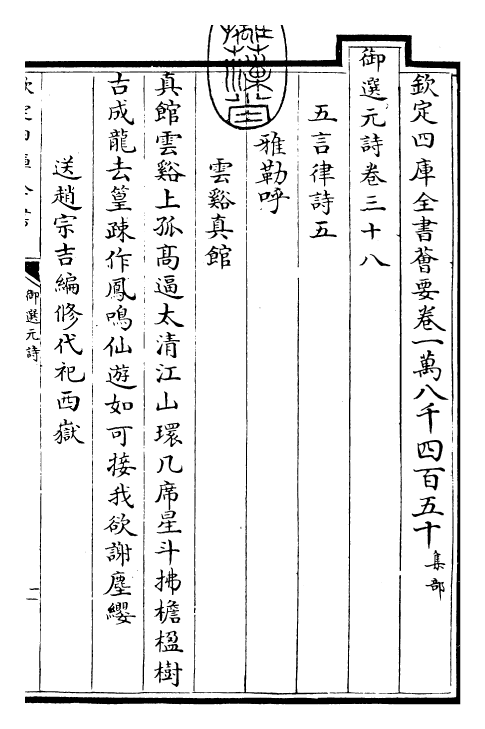 欽定四庫全書薈要卷一萬八千四百五十集部
御選元詩卷三十八
五言律詩五
雅勒呼
雲谿真館
真館雲谿上孤高逼太清江山環几席星斗拂檐楹樹
古成龍去篁疎作鳳鳴仙遊如可接我欲謝塵纓
送趙宗吉編修代祀西嶽
御選元詩